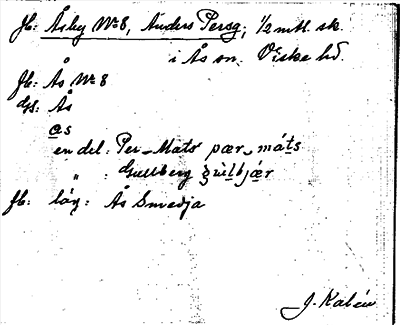 fb: Åsby Nr 8, Anders Persg, 1/2 mtl. sk.
i Ås sn. Viske hd.
fb: Ås Nr 8
Gs: Ås
as
en del: Per-Mats pær_máts
" : Gullberg
fb: läg: Ås Smedja
J. Kalén